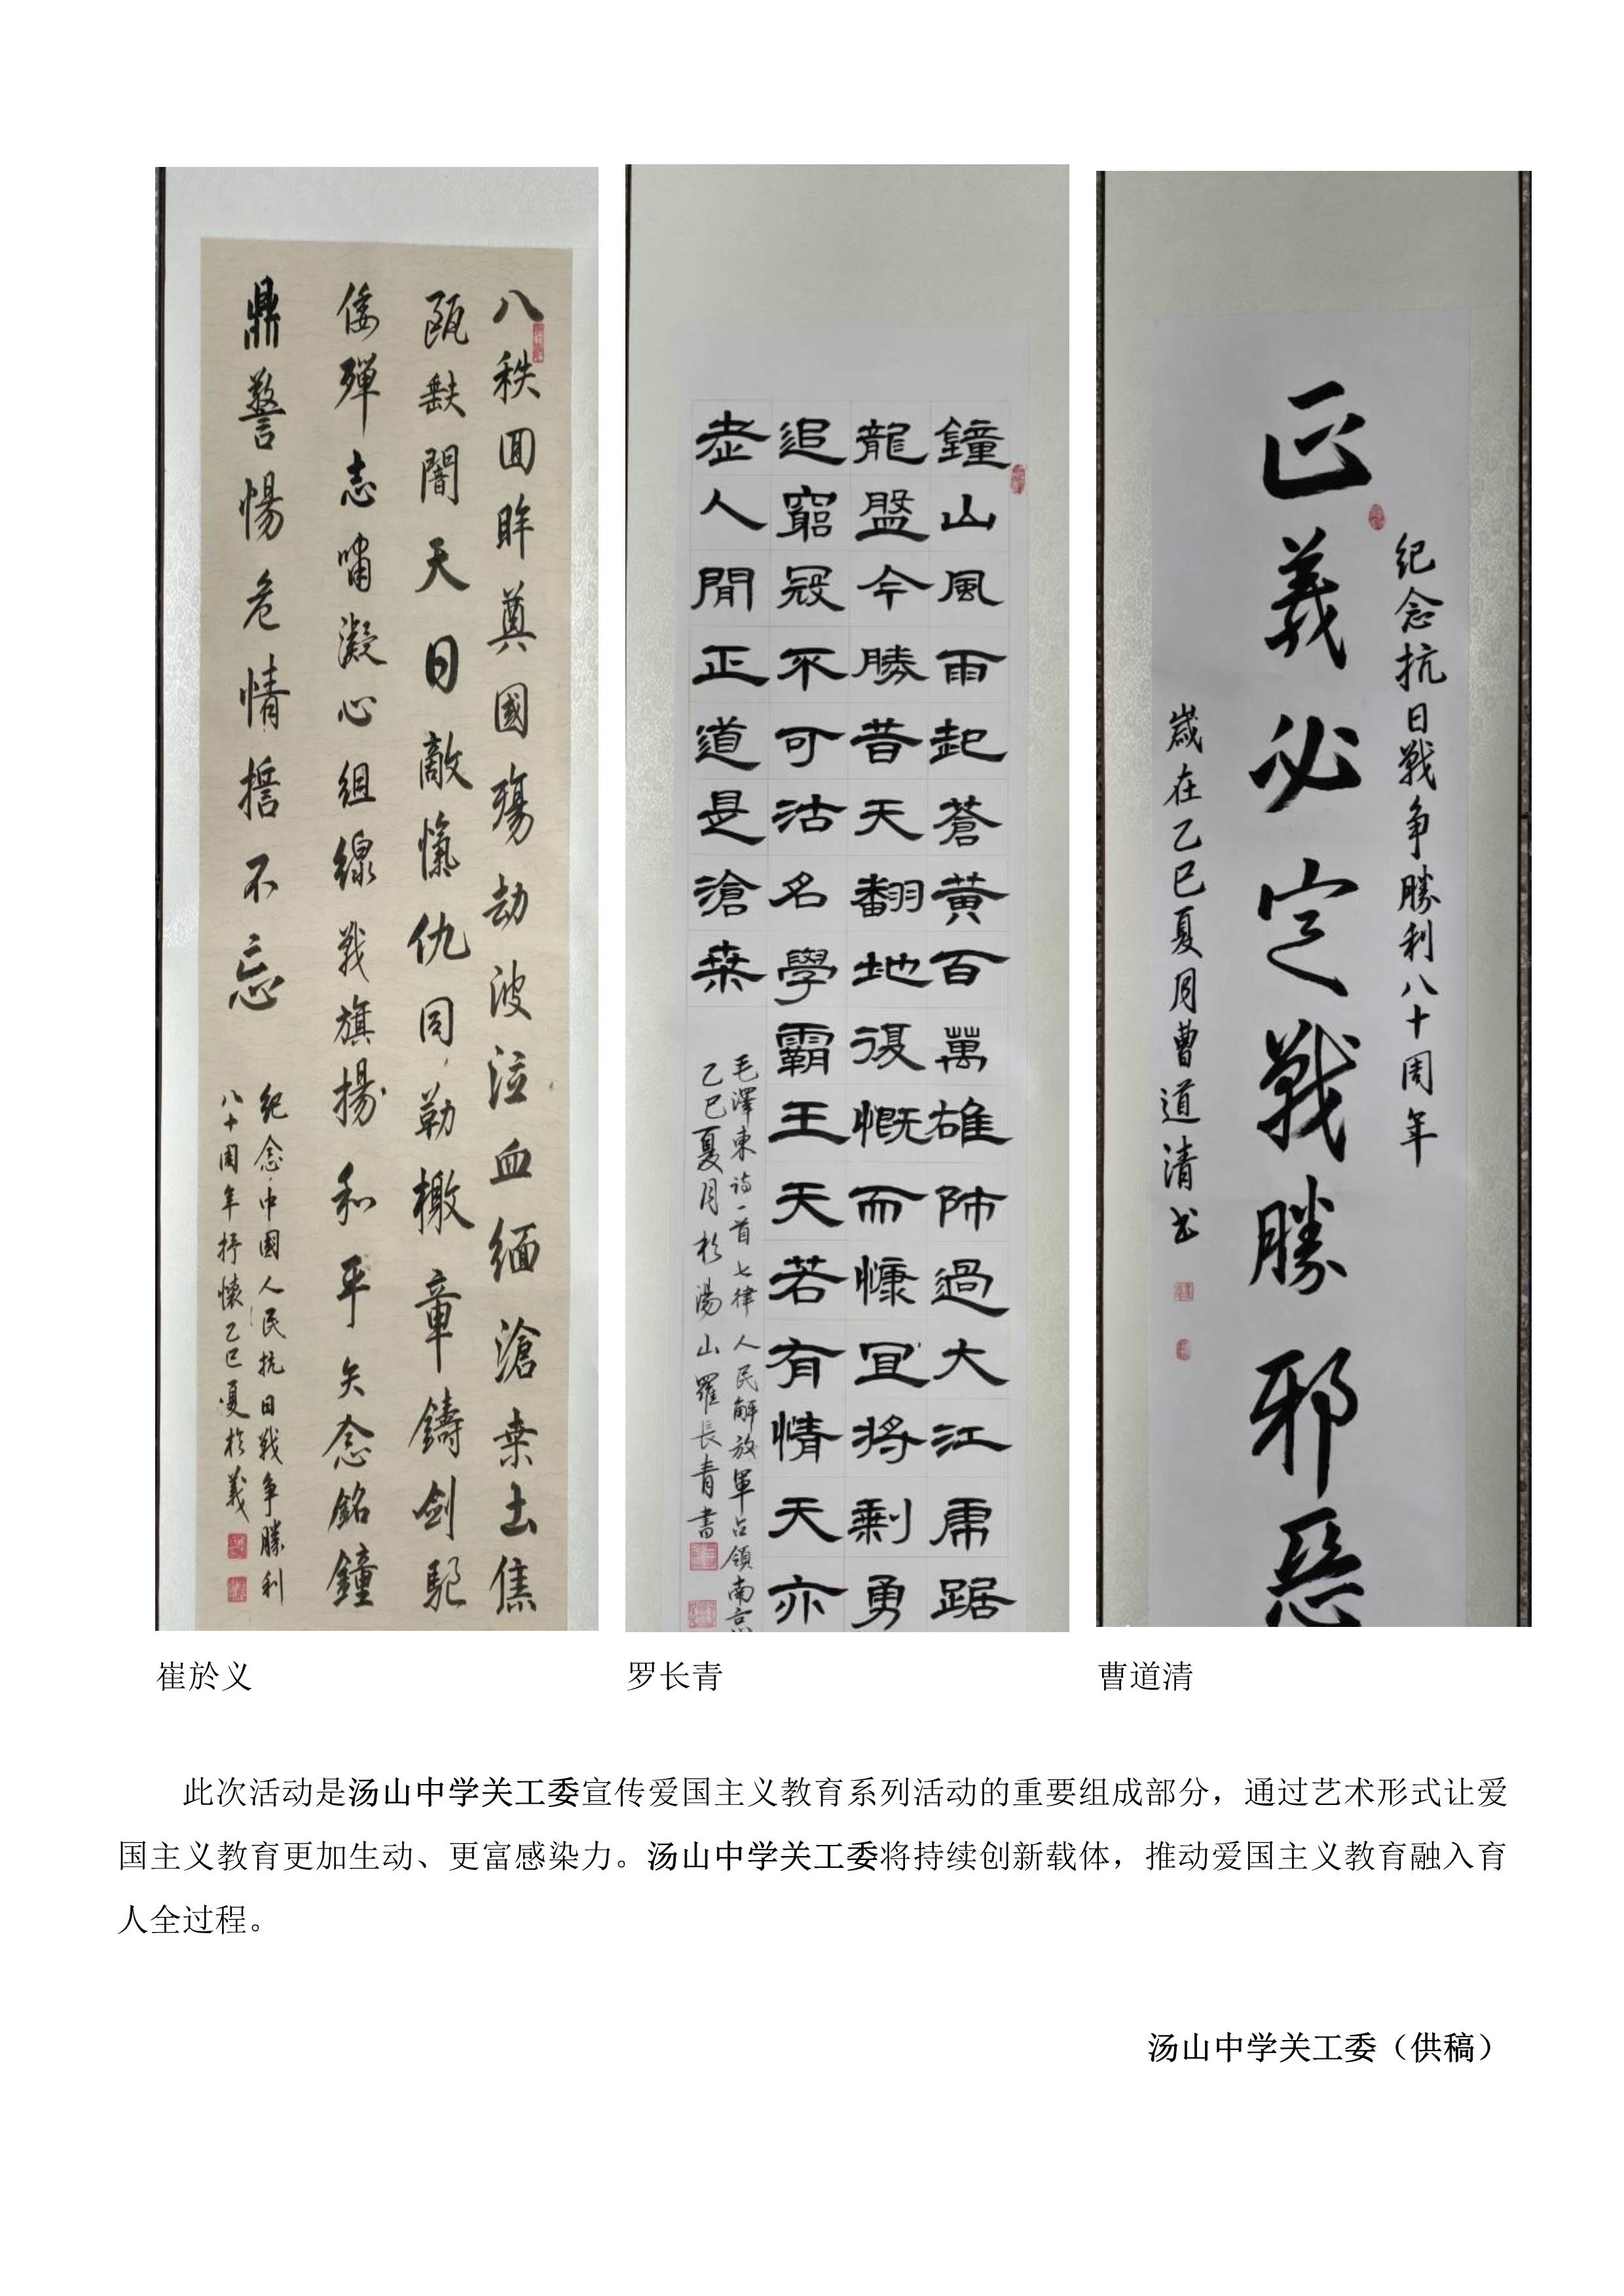 八秩囬眸奠國殤劫波泣血缅滄桑土焦
瓯缺闇天日敵愾仇同勒檄章鑄劍驅
倭殫志嘯凝心组線戰旗揚和平矢念銘鐘
鼎警惕危情誓不忘
纪念中國人民抗日戰争勝利
八十周年抒懷乙巳夏於義
鐘山風雨起蒼黃百萬雄師過大江虎踞
龍盤今勝昔天翻地覆慨而慷宜將剩勇
追窮寇不可沽名學霸王天若有情天亦
老人間正道是滄桑
毛澤東詩一首七律人民解放軍占領南京
乙巳夏月於湯山羅長青書
纪念抗日戰争勝利八十周年
正義必定戰勝邪惡
歲在乙巳夏月曹道清书
崔於义
罗长青
曹道清
此次活动是汤山中学关工委宣传爱国主义教育系列活动的重要组成部分，通过艺术形式让爱
国主义教育更加生动、更富感染力。汤山中学关工委将持续创新载体，推动爱国主义教育融入育
人全过程。
汤山中学关工委（供稿）